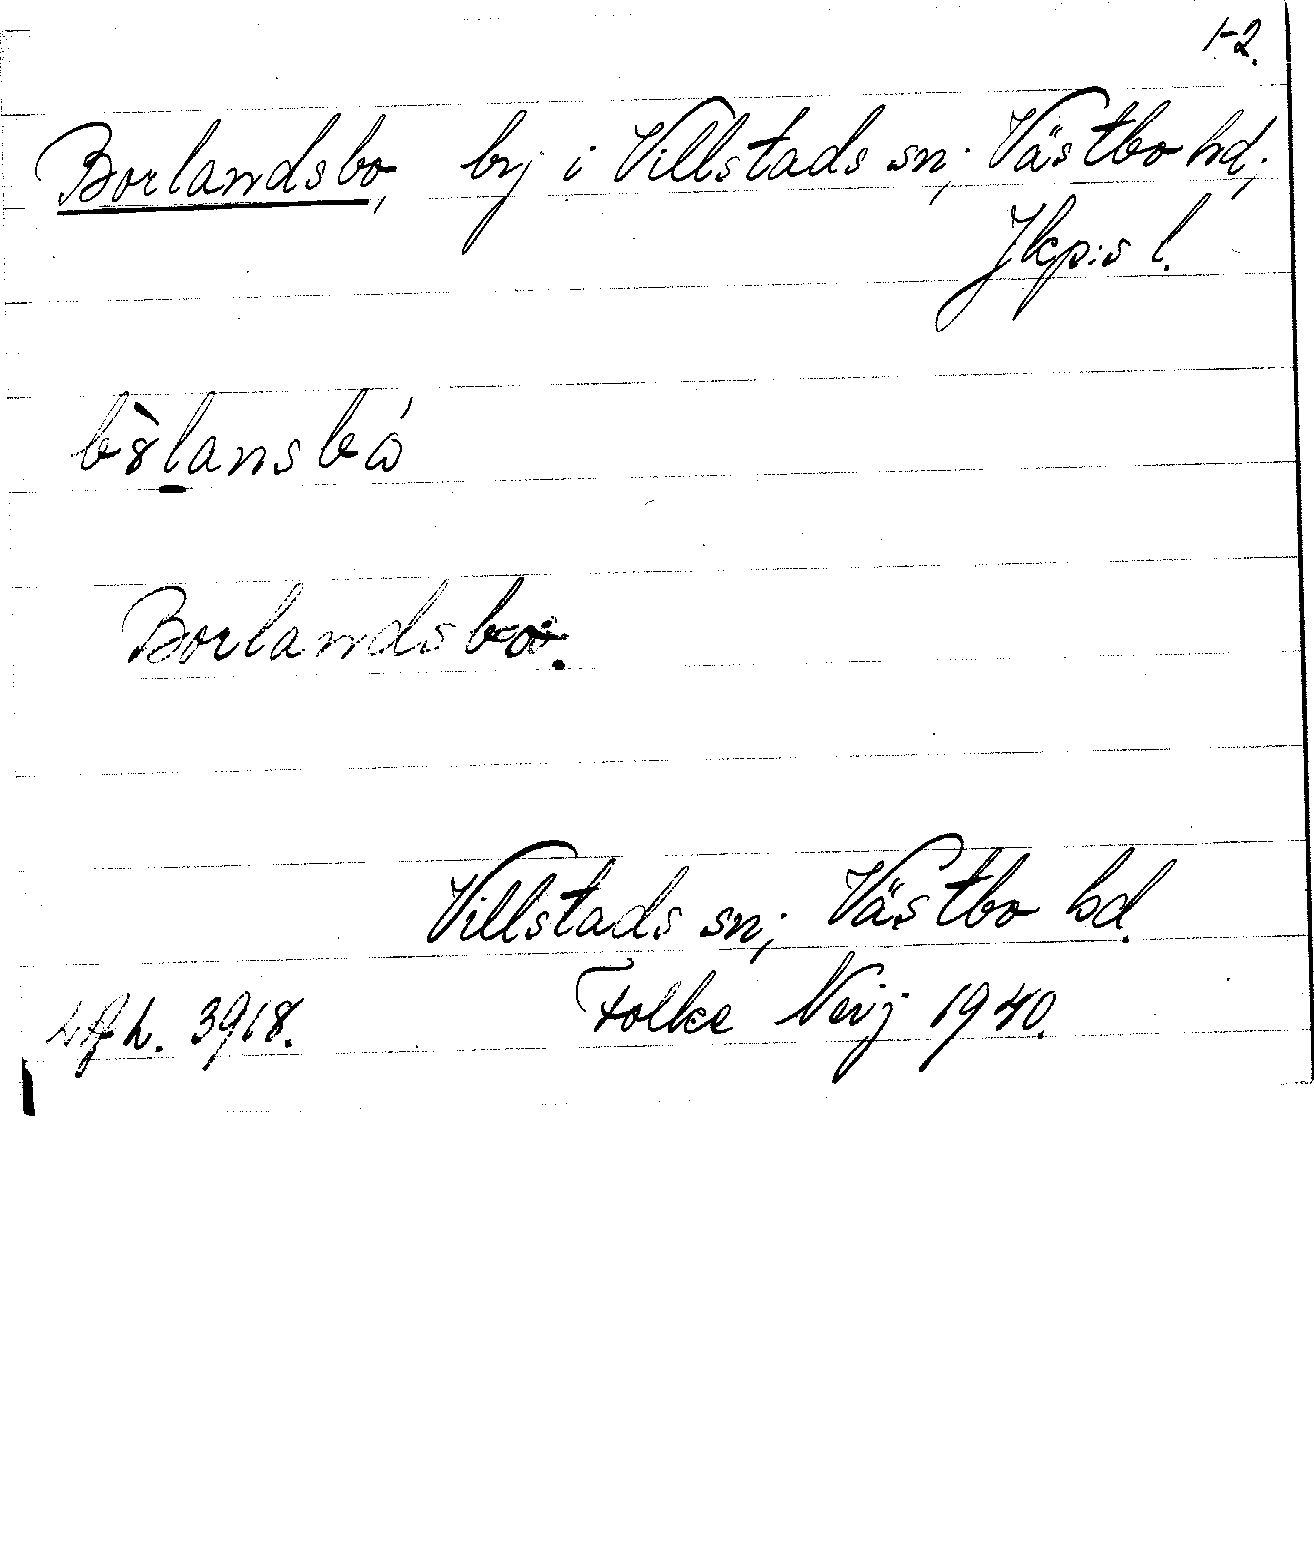 1-2.
Borlandsbo, by i Villstads sn; Västbo hd;
Jkp:s l.
Borlandsbo.
Villstads sn; Västbo hd.
3918. Folke 1940.